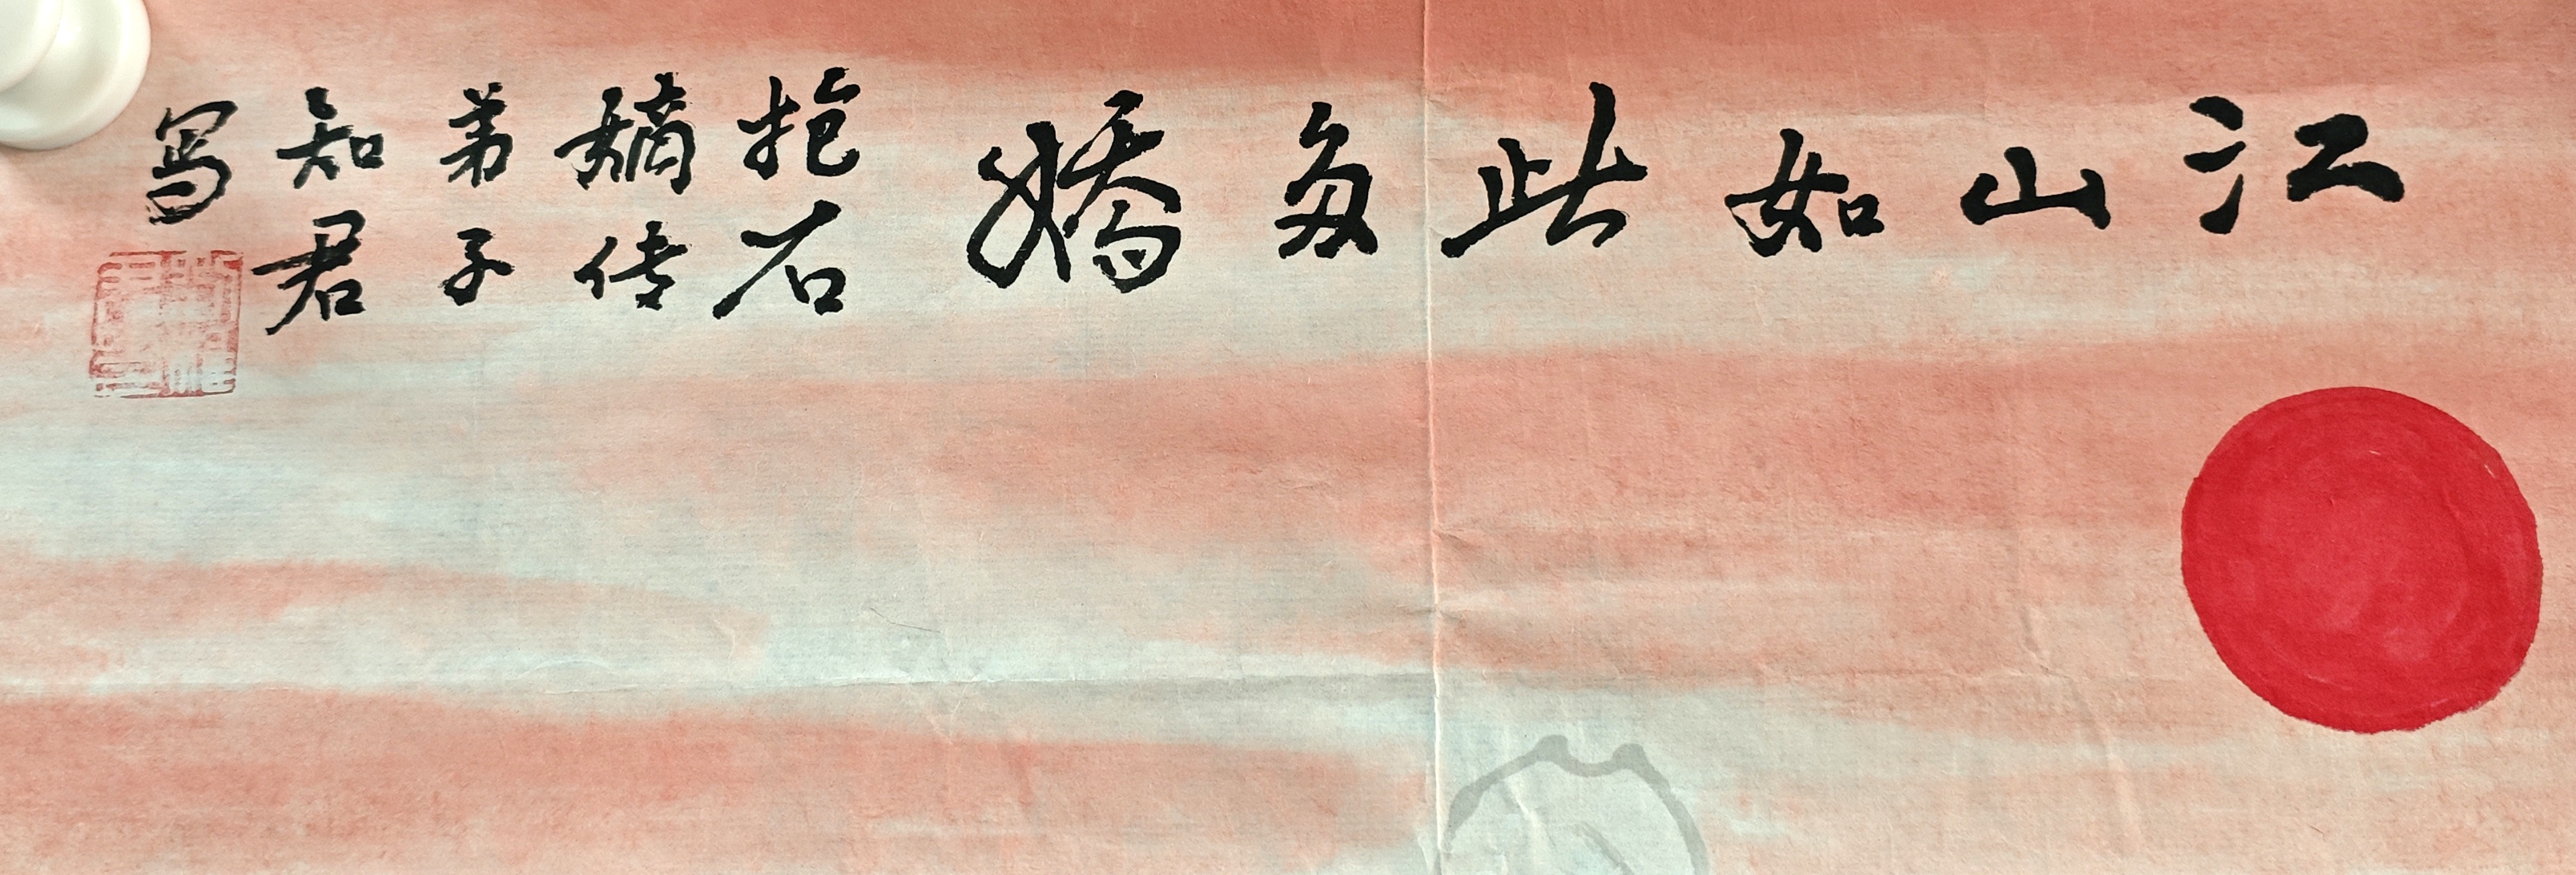 江山如此多嬌
抱石
嫡传
弟子
知君
写